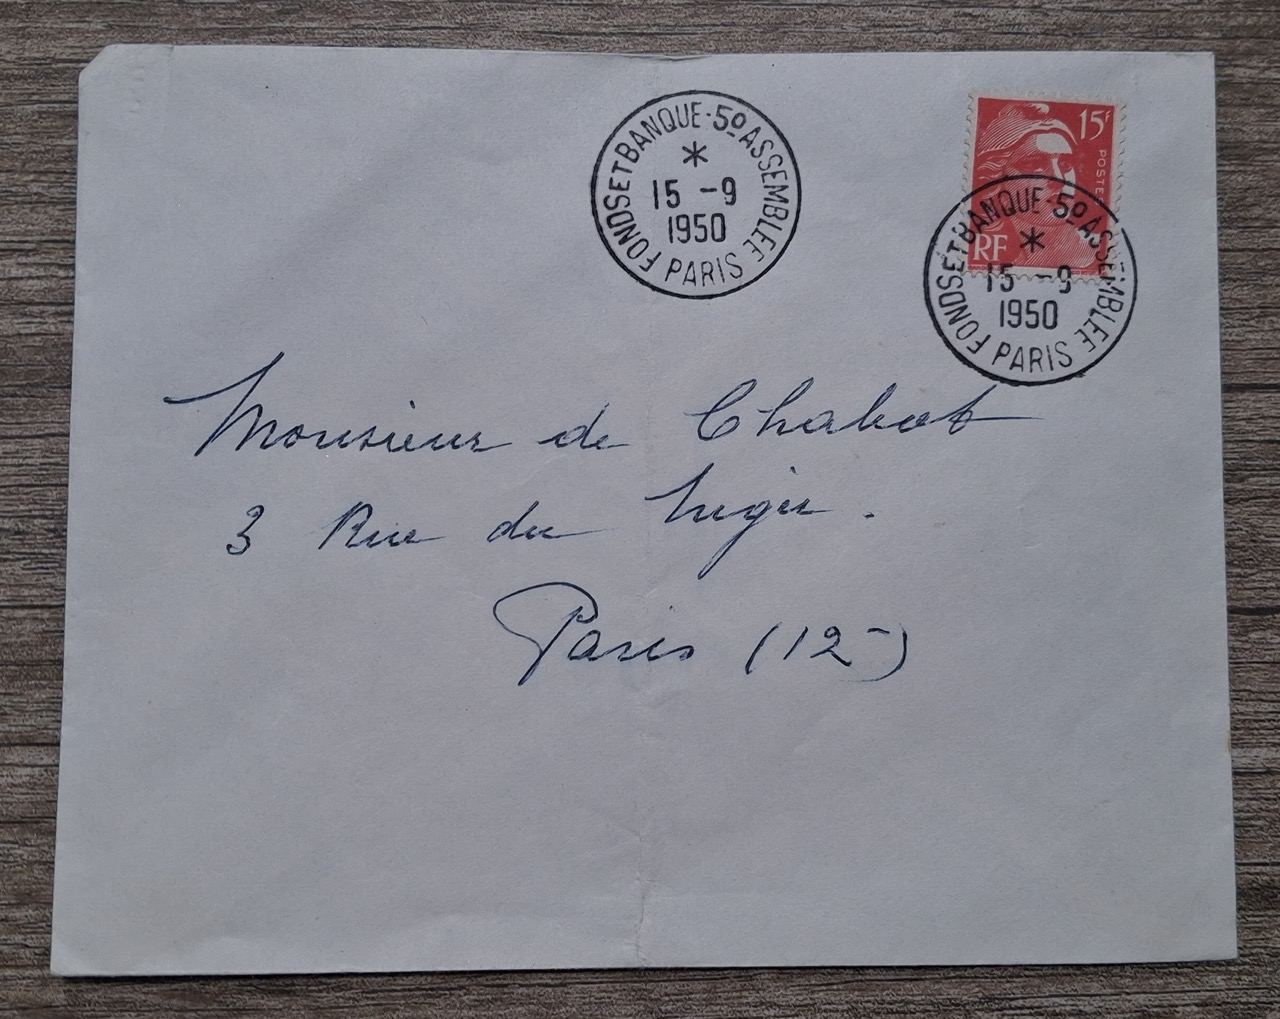 FONDS ET BANQUE - 5º ASSEMBLEE
*
15 -9
1950
PARIS
15F
POSTES
RF
FONDS ET BANQUE - 5º ASSEMBLEE
*
15 -9
1950
PARIS
Monsieur de Chabot
3 Rue du Niger.
Paris (12-)